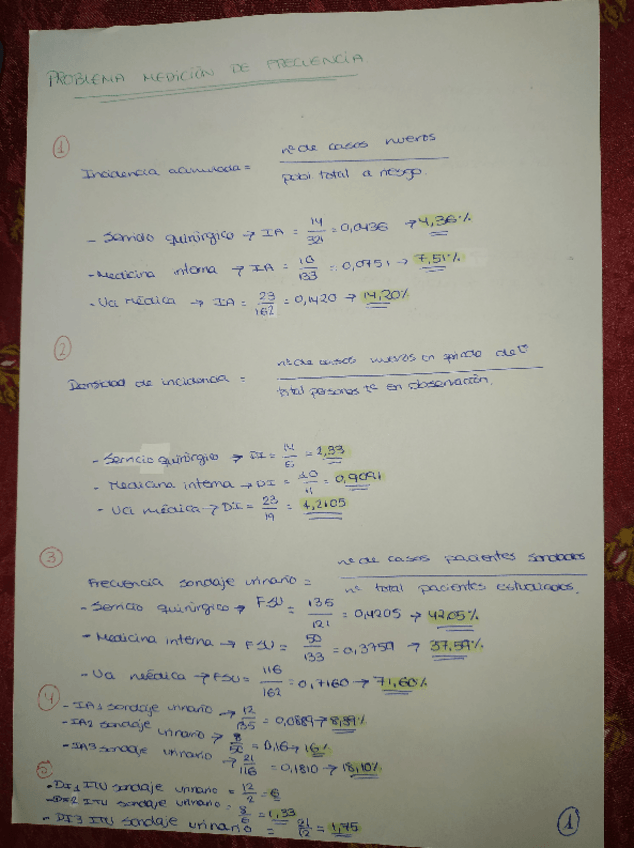 PROBLEMA MEDICIÓN DE FRECUENCIA
①
Incidencia acumulada = nº de casos nuevos / pobl total a riesgo.
- Servicio quirúrgico → IA = 14/321 = 0,0436 → 4,36%
- Medicina interna → IA = 10/133 = 0,0751 → 7,51%
- Uci médica → IA = 23/162 = 0,1420 → 14,20%
②
Densidad de incidencia = nº de casos nuevos en periodo de tº / total personas tº en observación.
- Servicio quirúrgico → DI = 14/6 = 2,33
- Medicina interna → DI = 10/11 = 0,9091
- Uci médica → DI = 23/19 = 1,2105
③
Frecuencia sondaje urinario = nº de casos pacientes sondados / nº total pacientes estudiados.
- Servicio quirúrgico → FSU = 135/121 = 0,4205 → 42,05%
- Medicina interna → FSU = 50/133 = 0,3759 → 37,59%
- Uci médica → FSU = 116/162 = 0,7160 → 71,60%
④
- IA1 sondaje urinario → 12/135 = 0,0889 → 8,89%
- IA2 sondaje urinario → 8/50 = 0,16 → 16%
- IA3 sondaje urinario → 21/116 = 0,1810 → 18,10%
⑤
- DI1 ITU sondaje urinario = 12/2 = 6
- DI2 ITU sondaje urinario = 8/6 = 1,33
- DI3 ITU sondaje urinario = 21/12 = 1,75
①